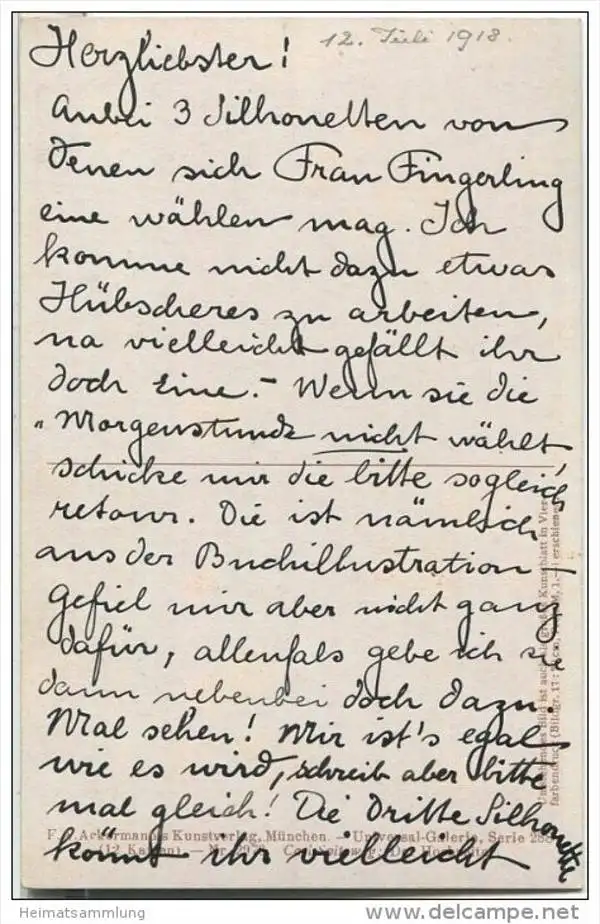 12. Juli 1918.
Herzliebster!
Anbei 3 Silhouetten von
denen sich Frau Fingerling
eine wählen mag. Ich
komme nicht dazu etwas
Hübscheres zu arbeiten,
na vielleicht gefällt ihr
doch Eine. - Wenn sie die
"Morgenstunde nicht wählt,
schicke mir die bitte sogleich
retour. Die ist nämlich
aus der Buchillustration -
gefiel mir aber nicht ganz
dafür, allenfals gebe ich sie
dann nebenbei doch dazu.
Mal sehen! Mir ist's egal
wie es wird, schreib aber bitte
mal gleich! Die Dritte Silhouette
könnt ihr vielleicht
F. A. Ackermann's Kunstverlag, München. - Universal-Galerie, Serie
(12 Karten). - Nr.
Bild ist auch als Kunstblatt in Vier-
farbendruck (Bildgr. 17: cm, M. 1.-) erschienen
Heimatsammlung
http://www.delcampe.net